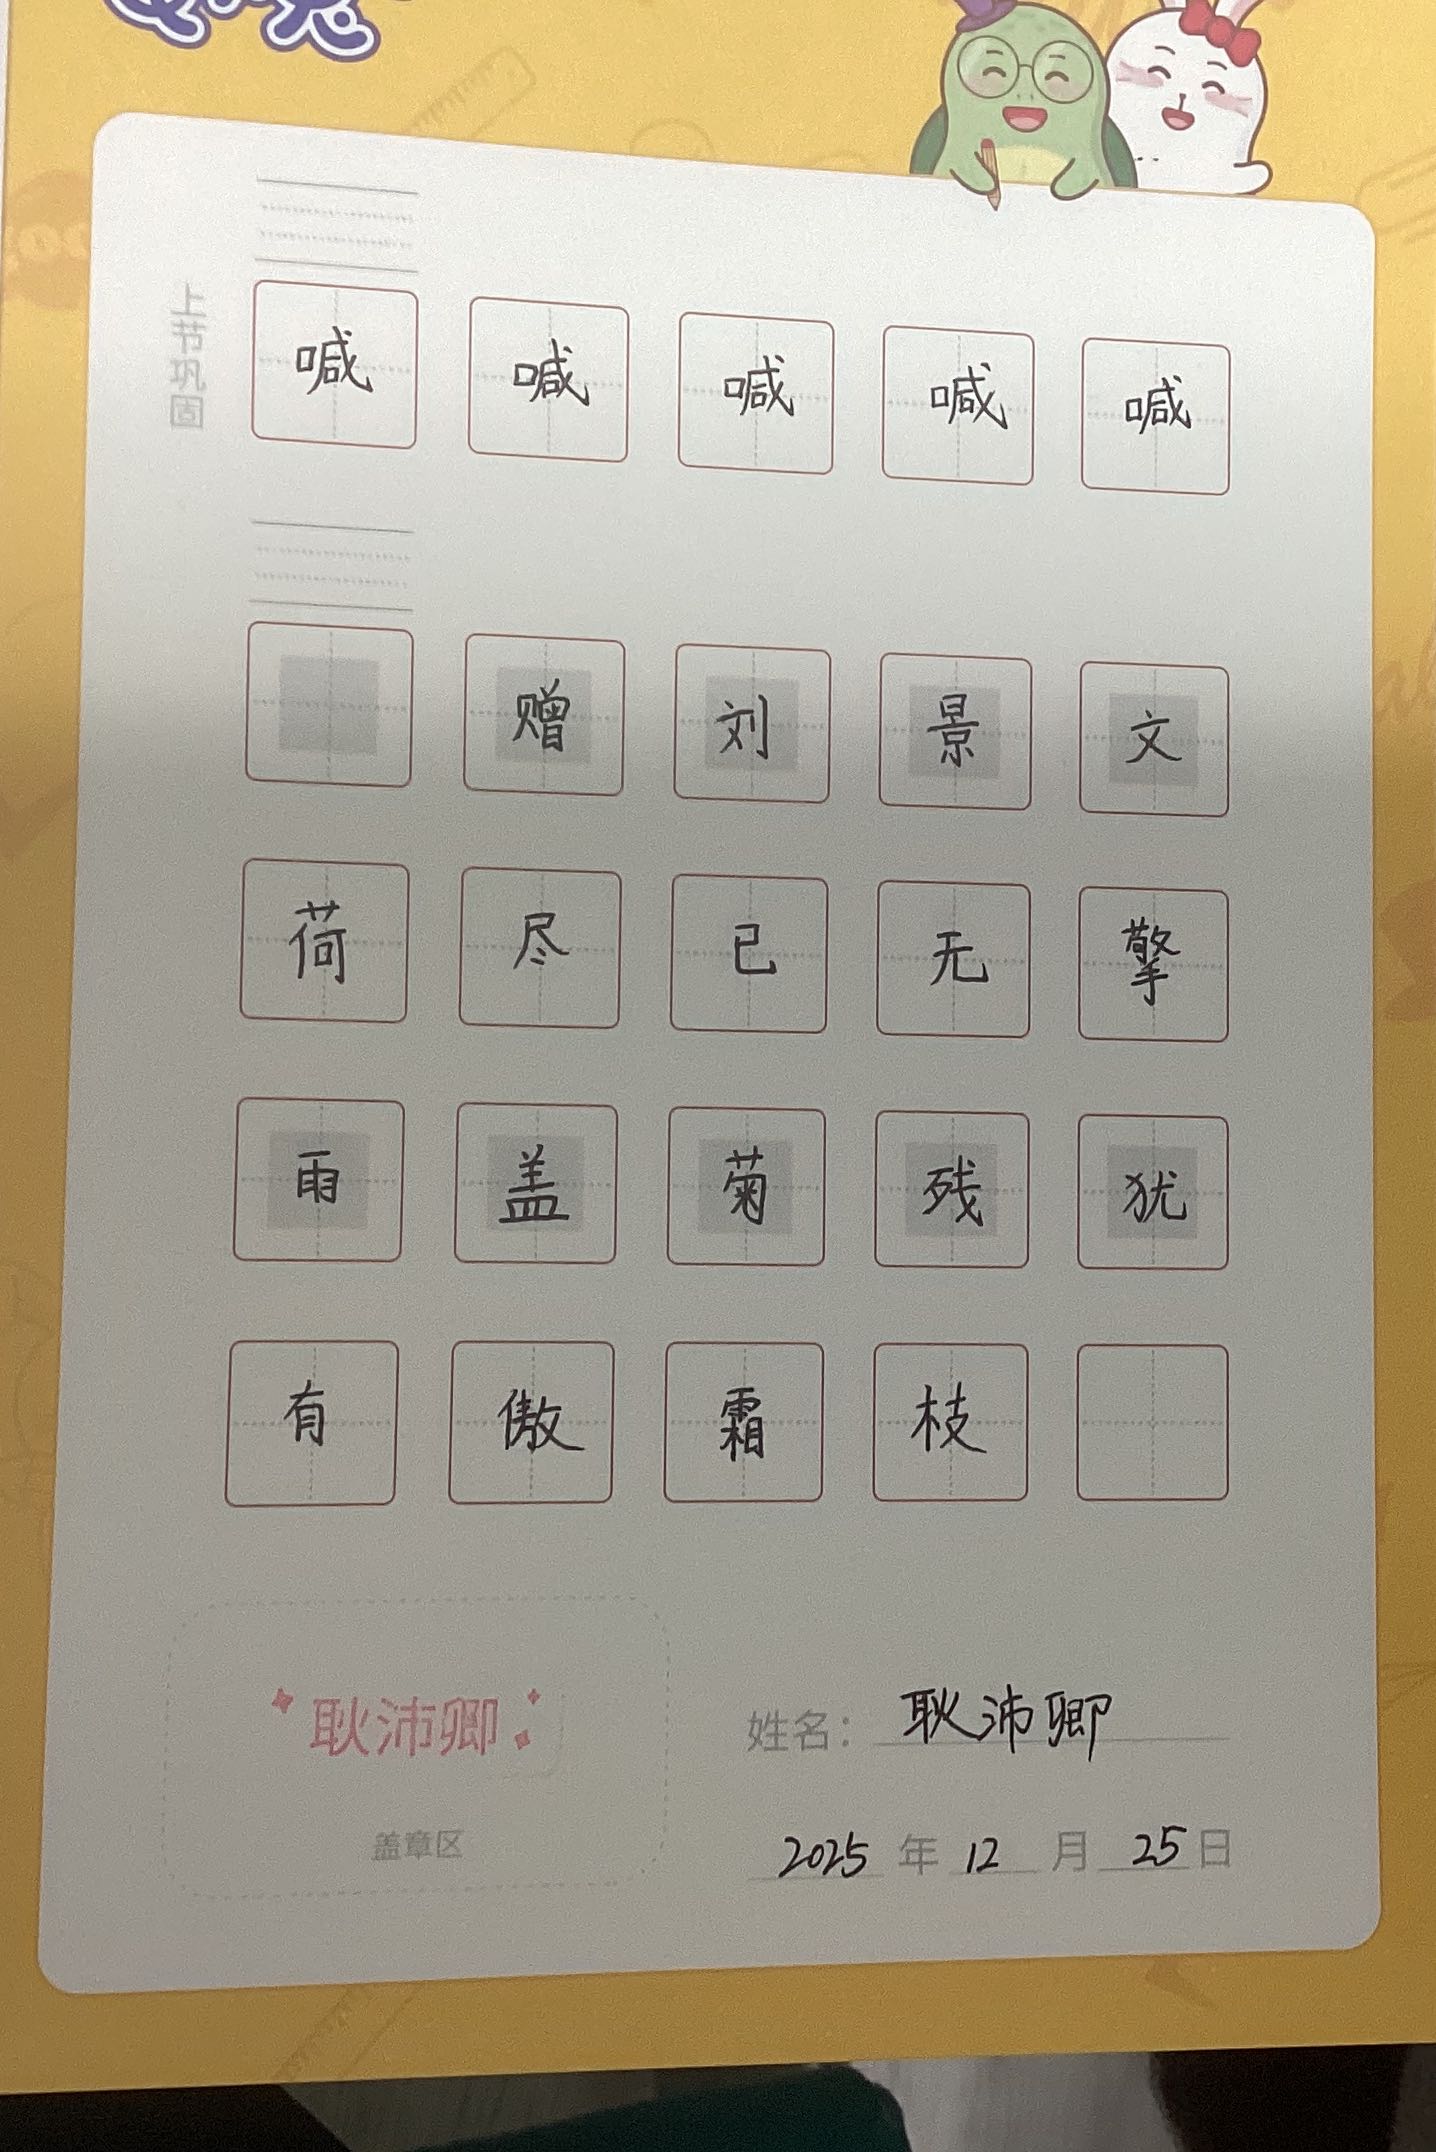 上节巩固
喊 喊 喊 喊 喊
赠 刘 景 文
荷 尽 已 无 擎
雨 盖 菊 残 犹
有 傲 霜 枝
耿沛卿
盖章区
姓名：耿沛卿
2025年12月25日